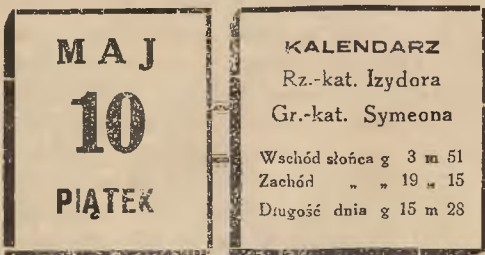 MAJ
10
PIĄTEK
KALENDARZ
Rz.-kat. Izydora
Gr.-kat. Symeona
Wschód słońca g 3 m 51
Zachód „ „ 19 „ 15
Długość dnia g 15 m 28